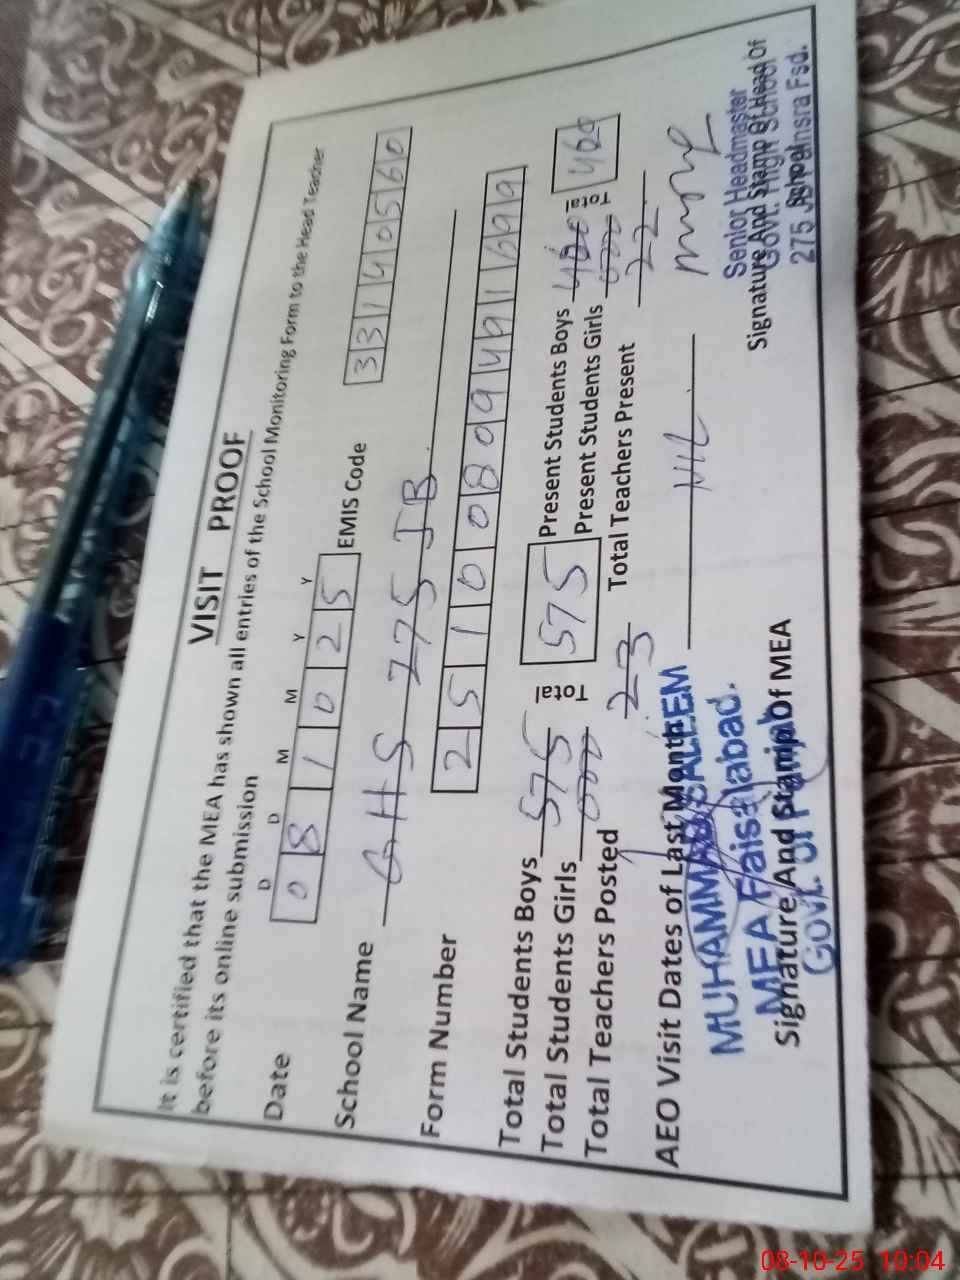 VISIT PROOF
It is certified that the MEA has shown all entries of the School Monitoring Form to the Head Teacher
before its online submission
D D M M Y Y
Date 0 8 1 0 2 5 EMIS Code 3 3 1 4 0 5 6 0
School Name GHS 275 JB.
Form Number 2 5 1 0 0 8 0 9 4 9 1 6 9 9
Total Students Boys 575 Total 575 Present Students Boys 460 Total 460
Total Students Girls 000 Present Students Girls 000
Total Teachers Posted 23 Total Teachers Present 22
AEO Visit Dates of Last Month Nil.
MUHAMMAD SALEEM
MEA Faisalabad.
Govt. of Punjab
Signature And Stamp Of MEA
Senior Headmaster
Govt. High School
275 JB Fsd.
Signature And Stamp Of Head Of
School
08-10-25 10:04